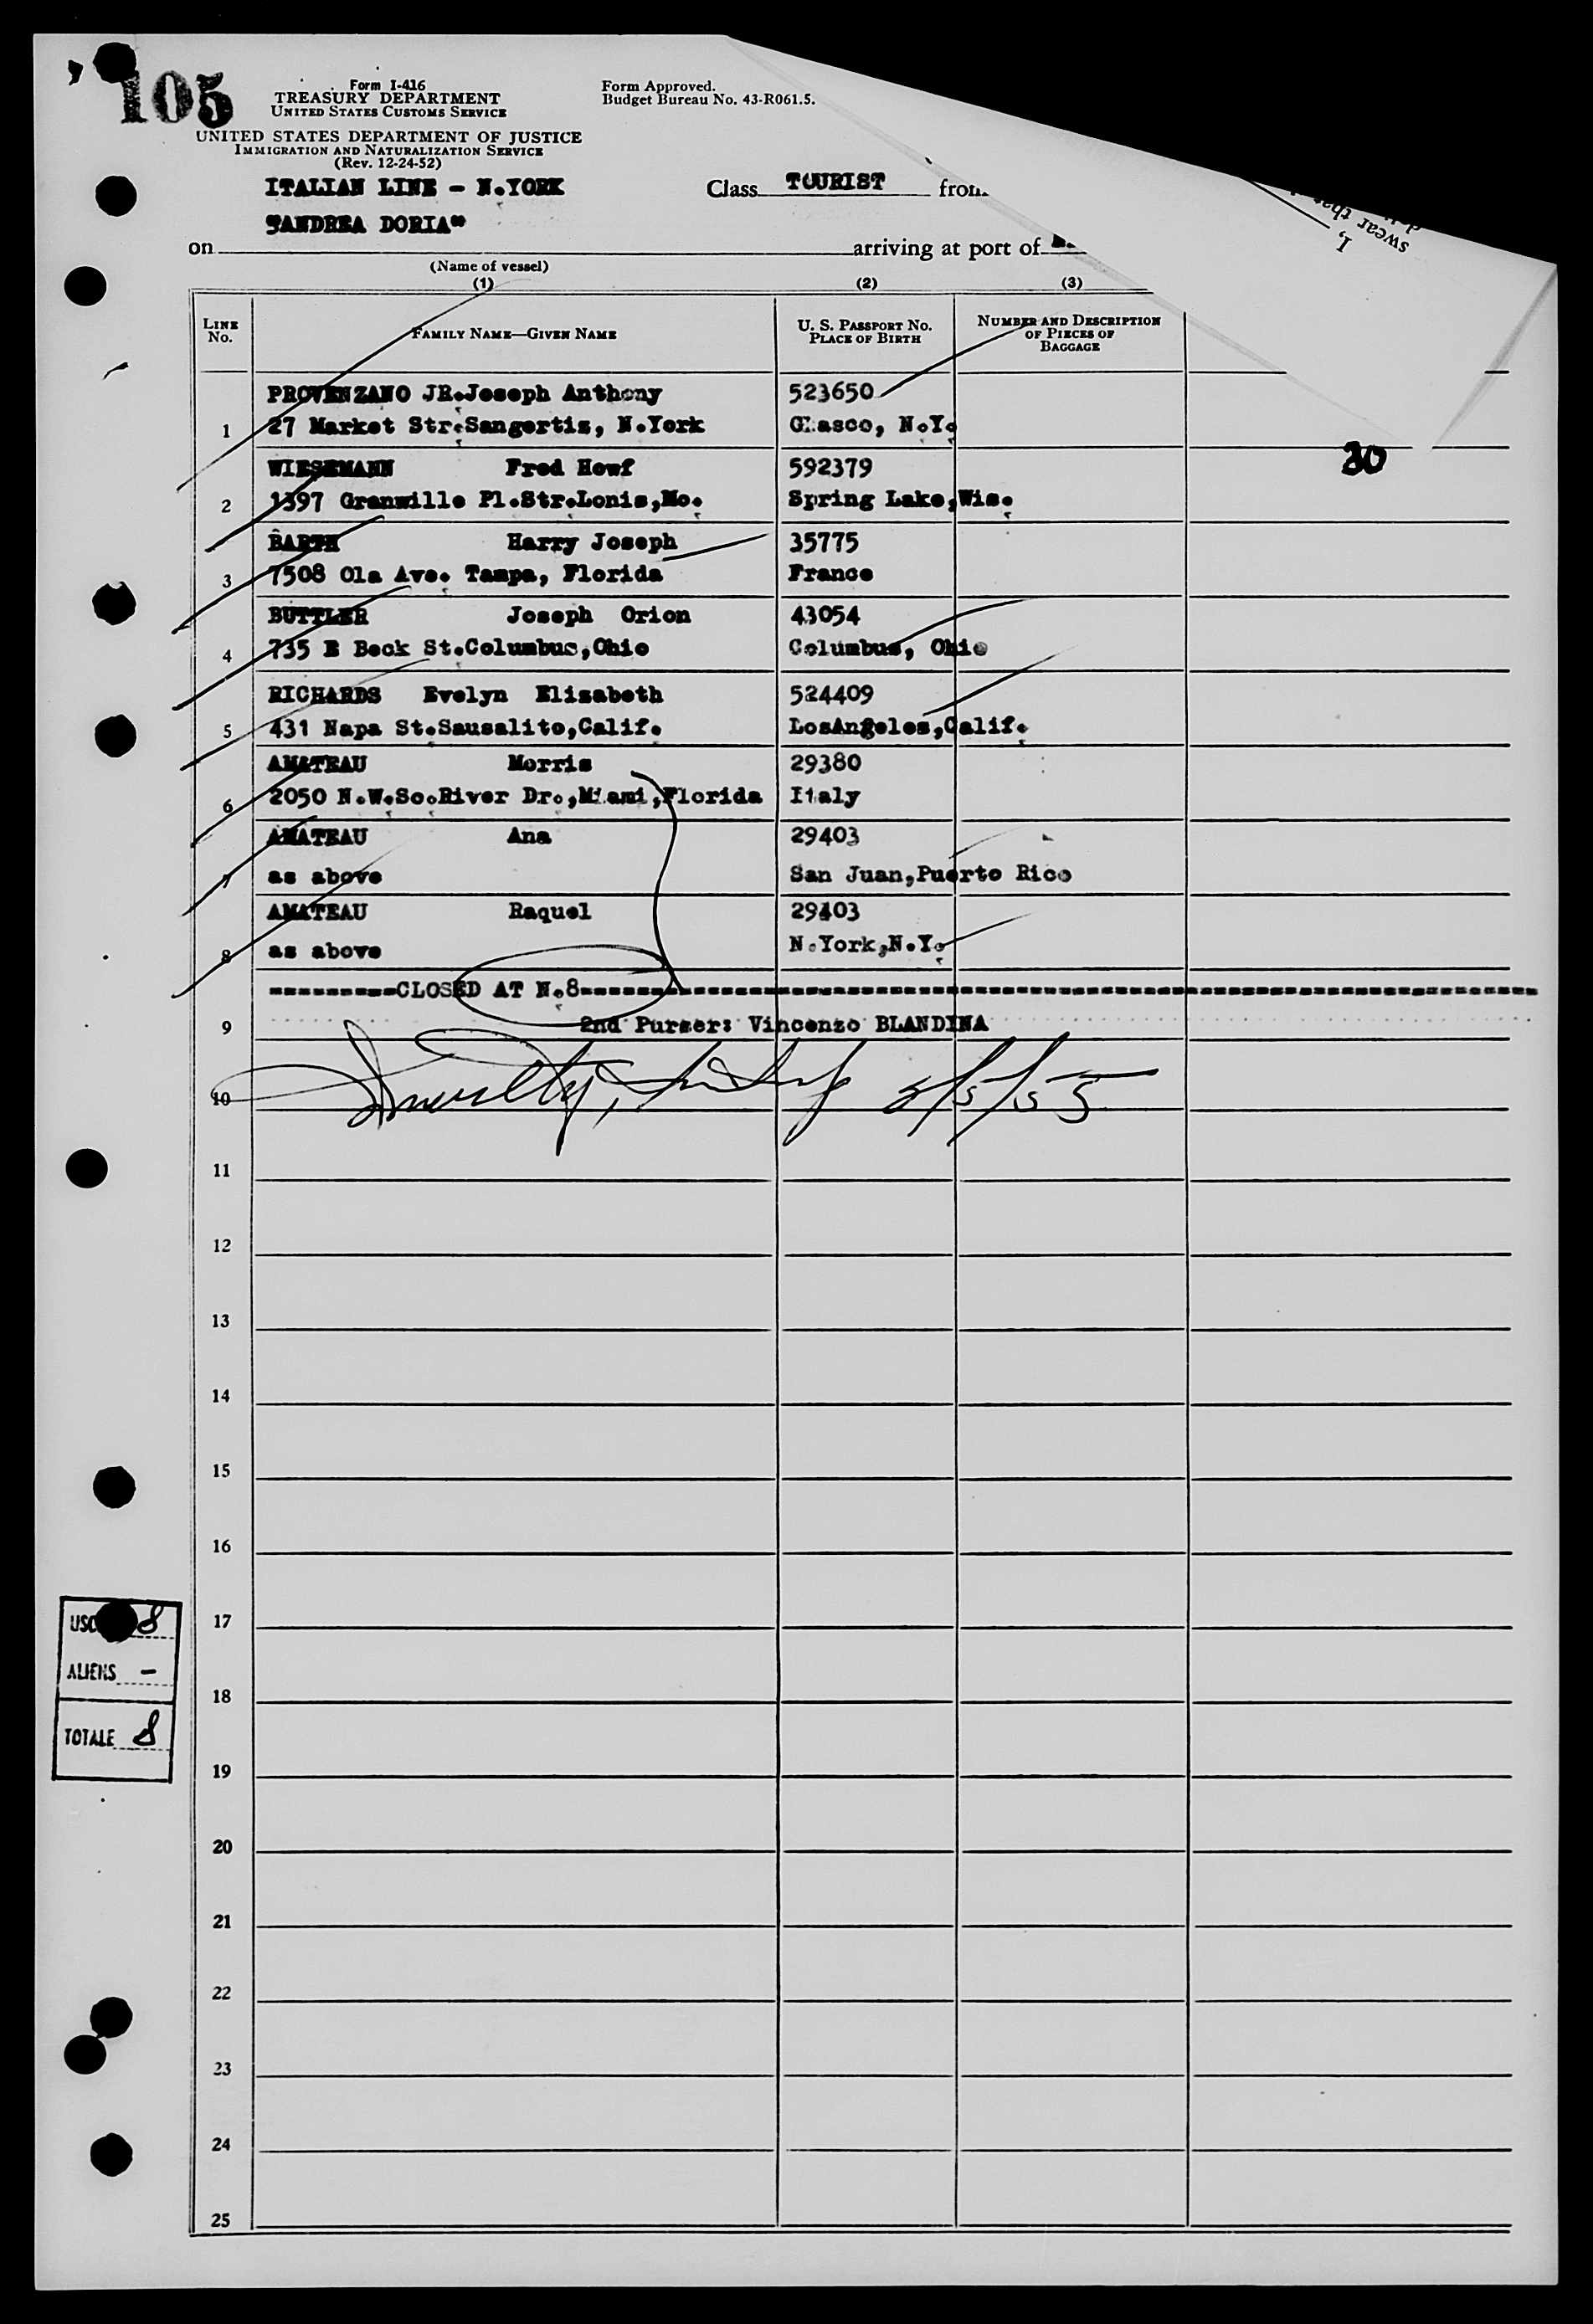 105
Form I-416
TREASURY DEPARTMENT
UNITED STATES CUSTOMS SERVICE
UNITED STATES DEPARTMENT OF JUSTICE
IMMIGRATION AND NATURALIZATION SERVICE
(Rev. 12-24-52)
Form Approved.
Budget Bureau No. 43-R061.5.
ITALIAN LINE - N.YORK
Class TOURIST from
"ANDREA DORIA"
on arriving at port of
(Name of vessel)
I,
swear that
(1) (2) (3)
LINE No. FAMILY NAME—GIVEN NAME U. S. PASSPORT No. PLACE OF BIRTH NUMBER AND DESCRIPTION OF PIECES OF BAGGAGE
PROVENZANO JR.Joseph Anthony 523650
1 27 Market Str.Sangertis, N.York Glasco, N.Y.
30
WIESEMANN Fred Howf 592379
2 1397 Granwille Pl.Str.Lonis,Mo. Spring Lake,Wis.
BARTH Harry Joseph 35775
3 7508 Ola Ave. Tampa, Florida France
BUTTLER Joseph Orion 43054
4 735 E Beck St.Columbus,Ohio Columbus, Ohio
RICHARDS Evelyn Elisabeth 524409
5 431 Napa St.Sausalito,Calif. LosAngeles,Calif.
AMATEAU Morris 29380
6 2050 N.W.So.River Dr.,Miami,Florida Italy
AMATEAU Ana 29403
7 as above San Juan,Puerto Rico
AMATEAU Raquel 29403
8 as above N.York,N.Y.
----------CLOSED AT N.8----------
9 2nd Purser: Vincenzo BLANDINA
10 5/5/55
11
12
13
14
15
16
USC 8
17
ALIENS -
18
TOTALE 8
19
20
21
22
23
24
25